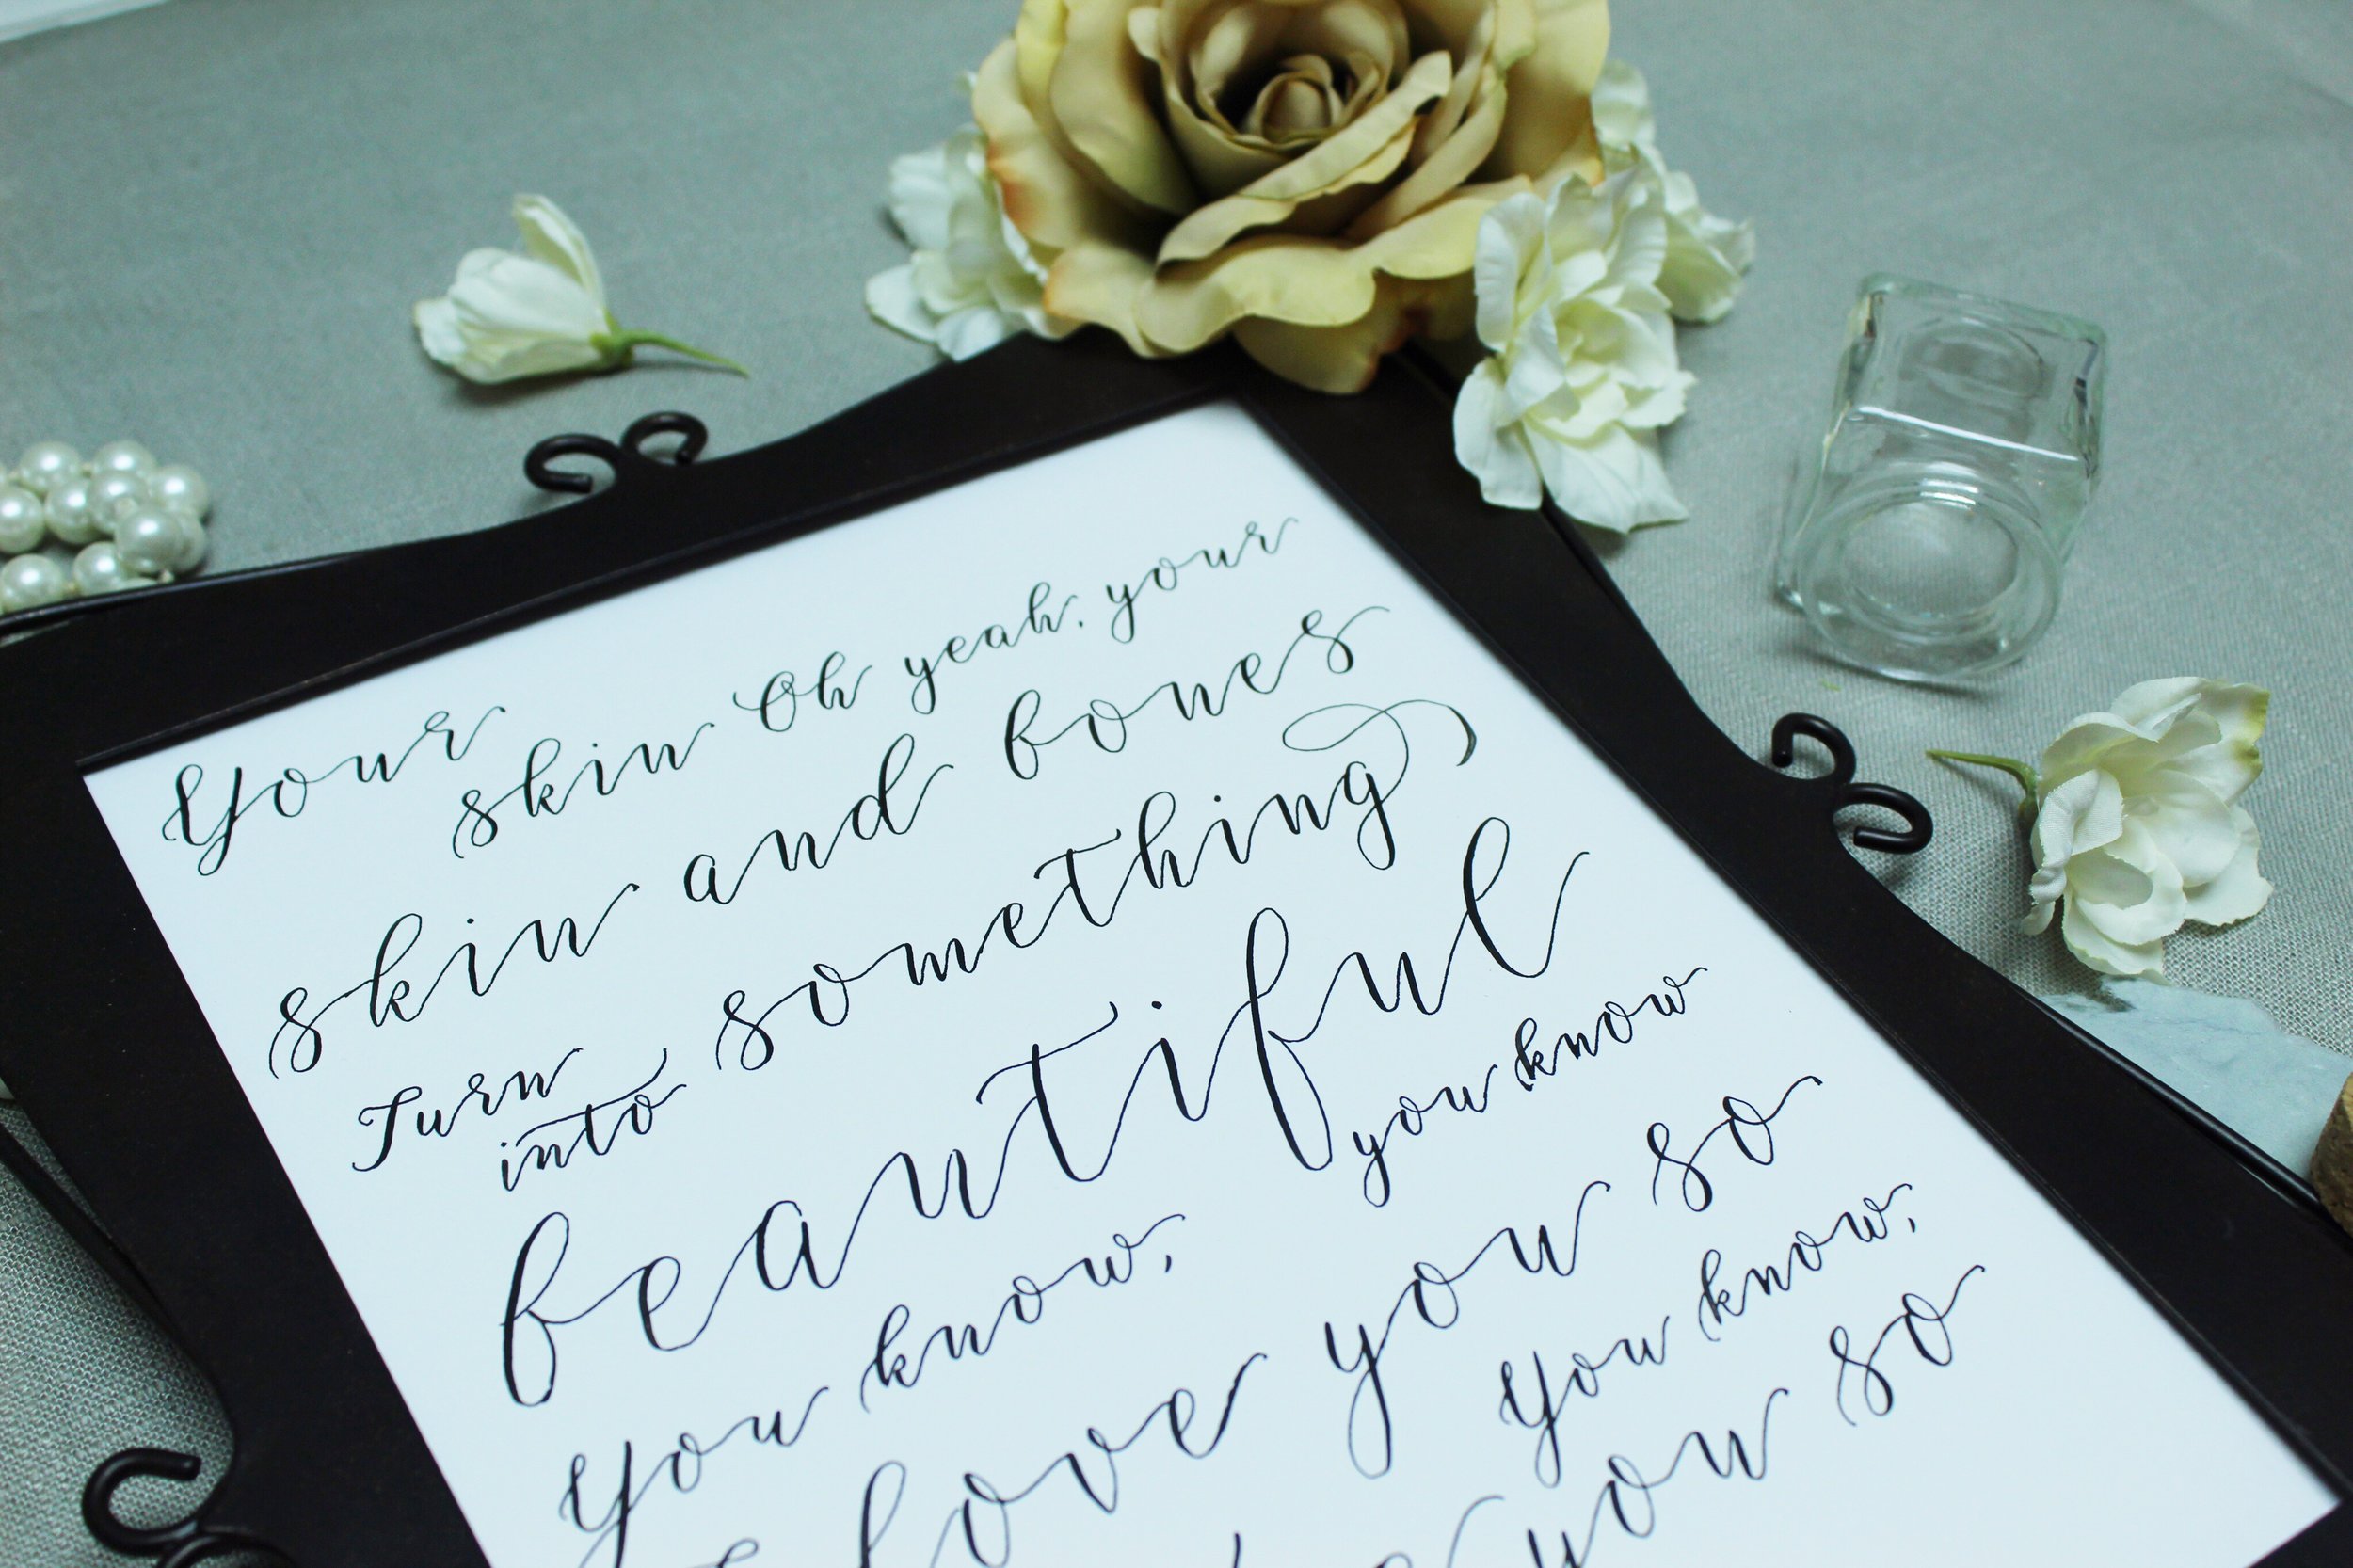 Your skin Oh yeah, your
skin and bones
Turn into something
beautiful
you know, you know
love you so
You know,
you so